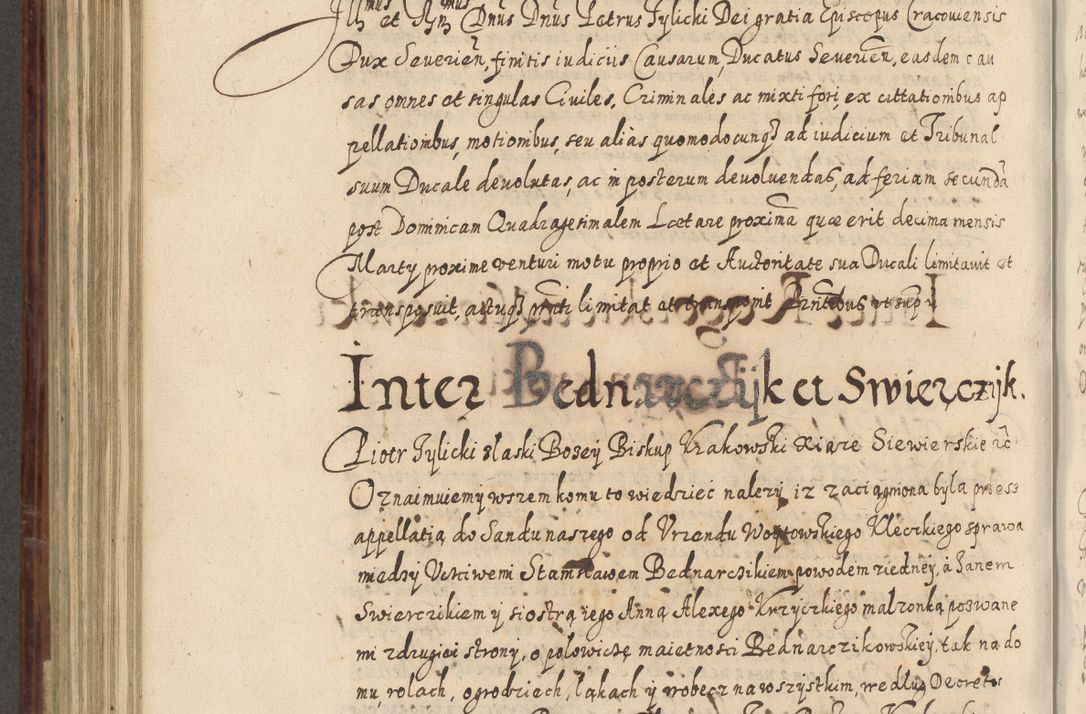 Illmus et Rndmus Dnus Dnus Petrus Tylicki Dei gratia Episcopus Cracoviensis
Dux Severien, finitis iudiciis Causarum, Ducatus Severien, easdem cau
sas omnes et singulas Civiles, Criminales ac mixti fori, ex cittationibus ap
pellationibus, motionibus, seu alias quomodocunqz ad iudicium et Tribunal
suum Ducale devolutas, ac in posterum devoluendas, ad feriam secunda
post Dominicam Quadragesimalem Laetare proxima quae erit decima mensis
Marty proxime venturi motu proprio et Authoritate sua Ducali limitavit et
transposuit, actuqz pnti limitat et transponit Pntibus ut supr
Inter Bednarczijk et Swierczijk.
Piotr Tylicki z laski Bozey Biskup Krakowski Xiąze Siewierskie etc
Oznaimuiemy wszem komu to wiedziec nalezy, iz zaciągniona była przess
appellatią do Sandu naszego od Urzendu Woytowskiego Kleczkiego sprawa
miedzy Uczciwemi Stanisławem Bednarczikiem powodem z iedney, á Janem
Swierczikiem y siostrą iego Anną Alexego Krzyczkiego malzonką pozwane
mi z drugiei strony, o polowiczę maietnosci Bednarczikowskiey, tak na do
mu, rolach, ogrodziech, łąkach y wobecz na wszystkim, wedlug Decretu